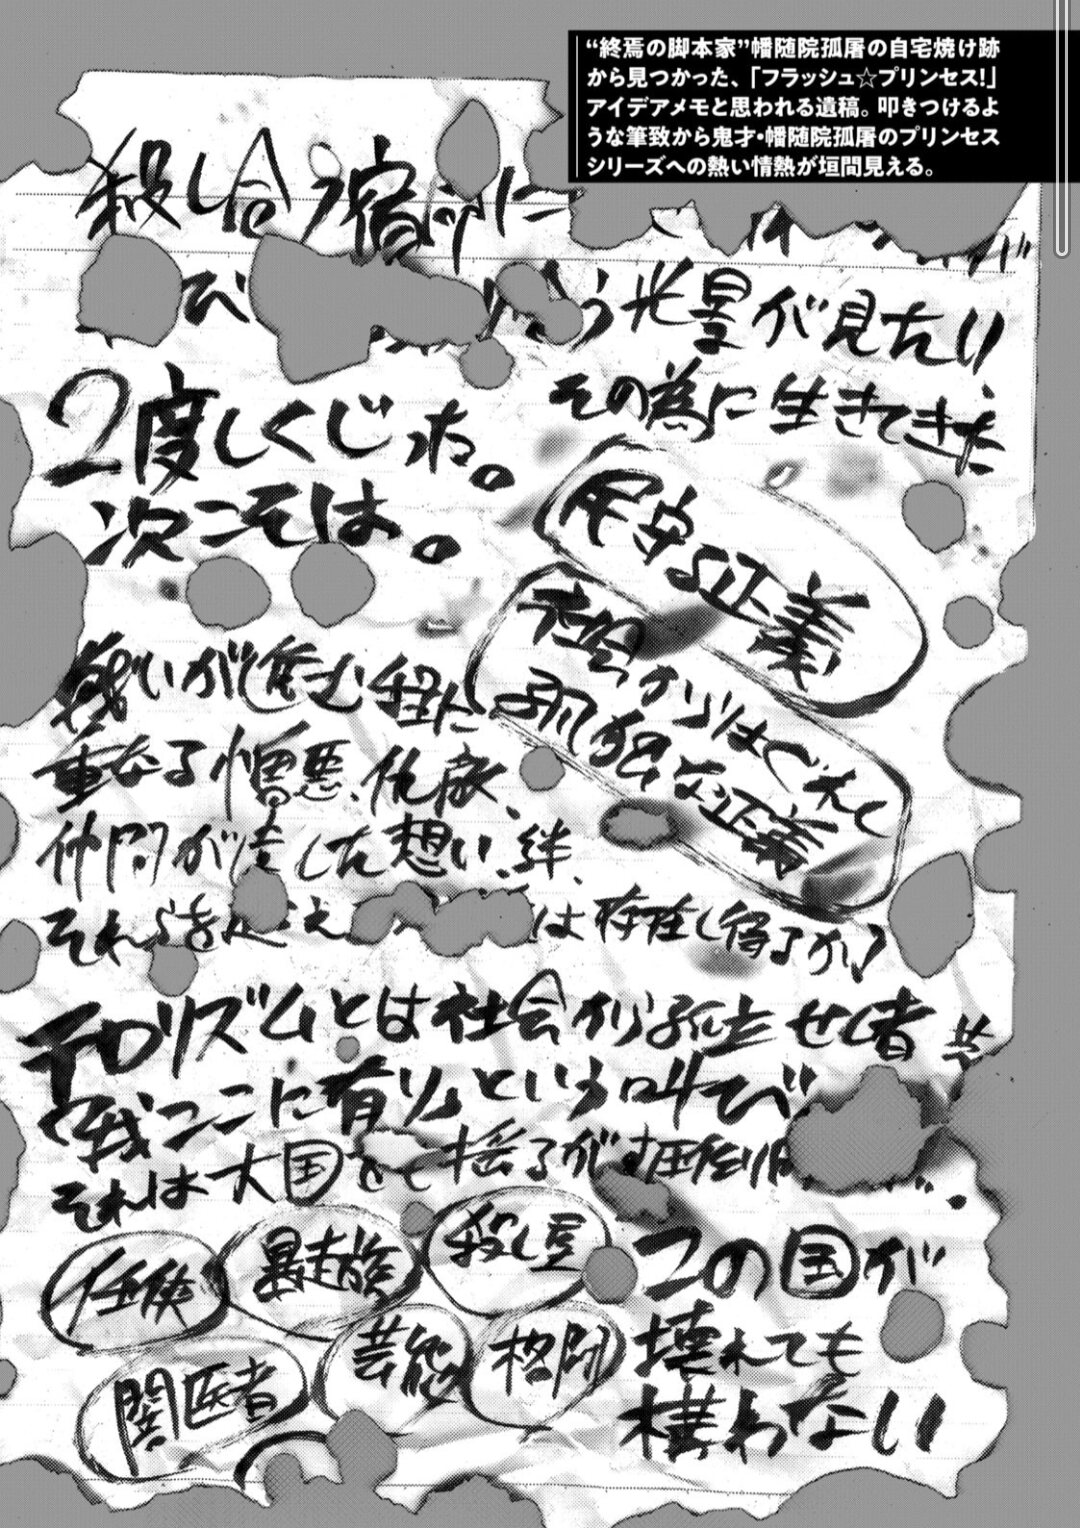 “終焉の脚本家”幡随院孤屠の自宅焼け跡
から見つかった、「フラッシュ☆プリンセス!」
アイデアメモと思われる遺稿。叩きつけるよ
うな筆致から鬼才・幡随院孤屠のプリンセス
シリーズへの熱い情熱が垣間見える。
殺し合う宿命に
び
う光景が見たい
その為に生きてきた
2度しくじった。
次こそは。
保守る正義
社会からはぐれて
孤独な正義
戦いが進む程に
重なる憎悪、仇敵、
仲間が遺した想い、絆、
それらを超え
は存在し得るか?
テロリズムとは社会から孤立せし者共
我ここに有りという叫び
それは大国をも揺るがす圧倒
任侠
暴走族
殺し屋
闇医者
芸能
格闘
この国が
壊れても
構わない